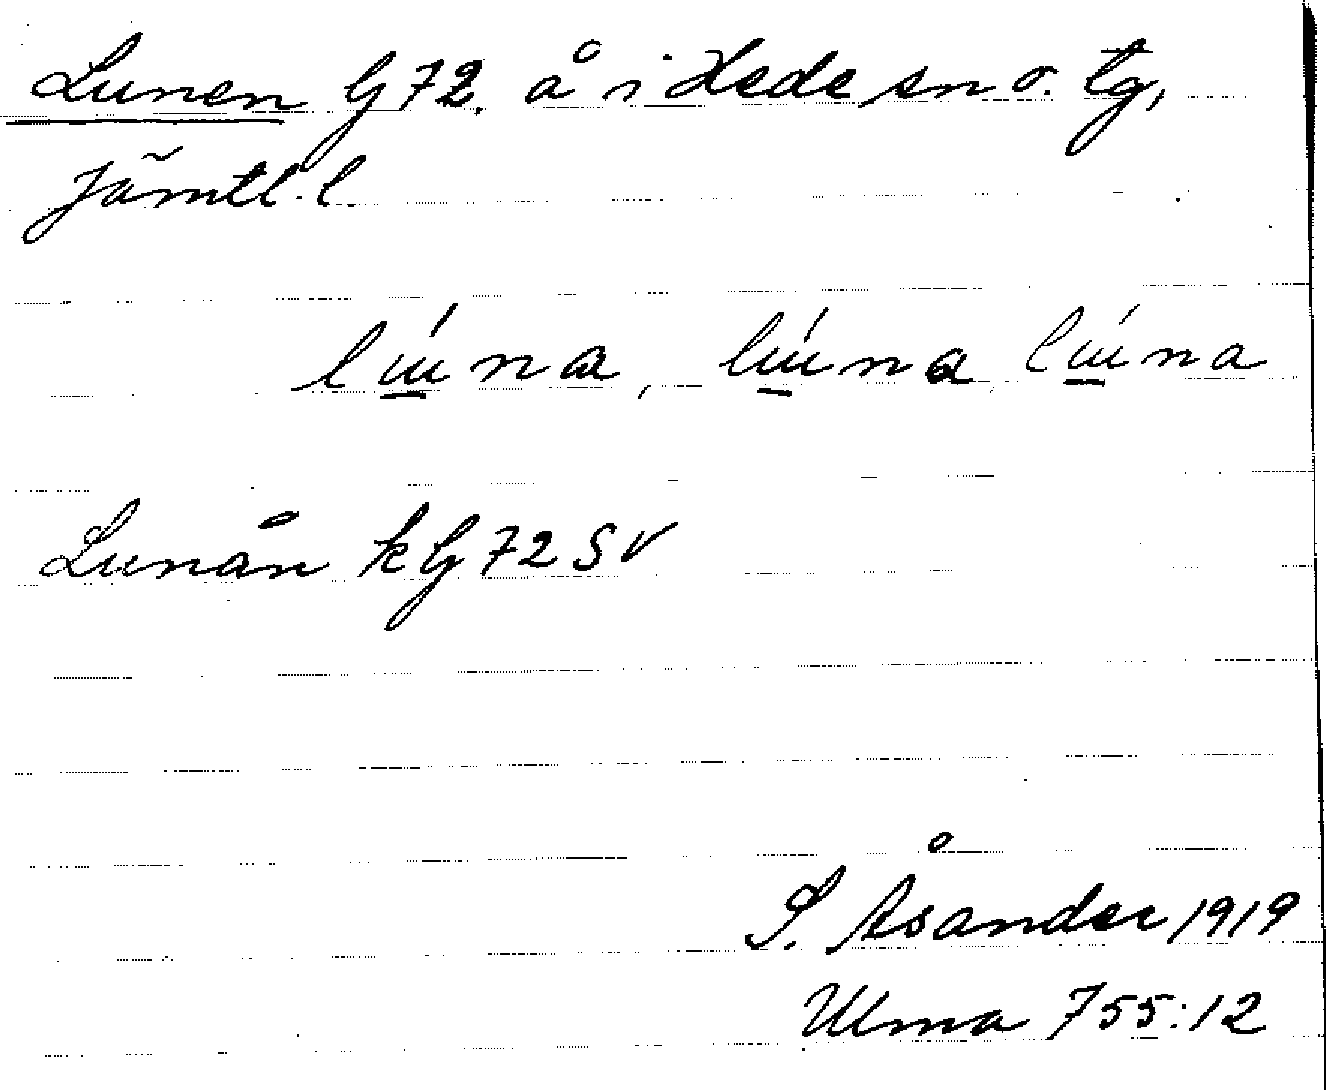 Lunen lj 72. å i Hede sn o. tg,
Jämtl. l.
lɯ́na, lɯ́na lɯ́na
Lunån klj 72 SV
S. Åsander 1919
Ulma 755:12